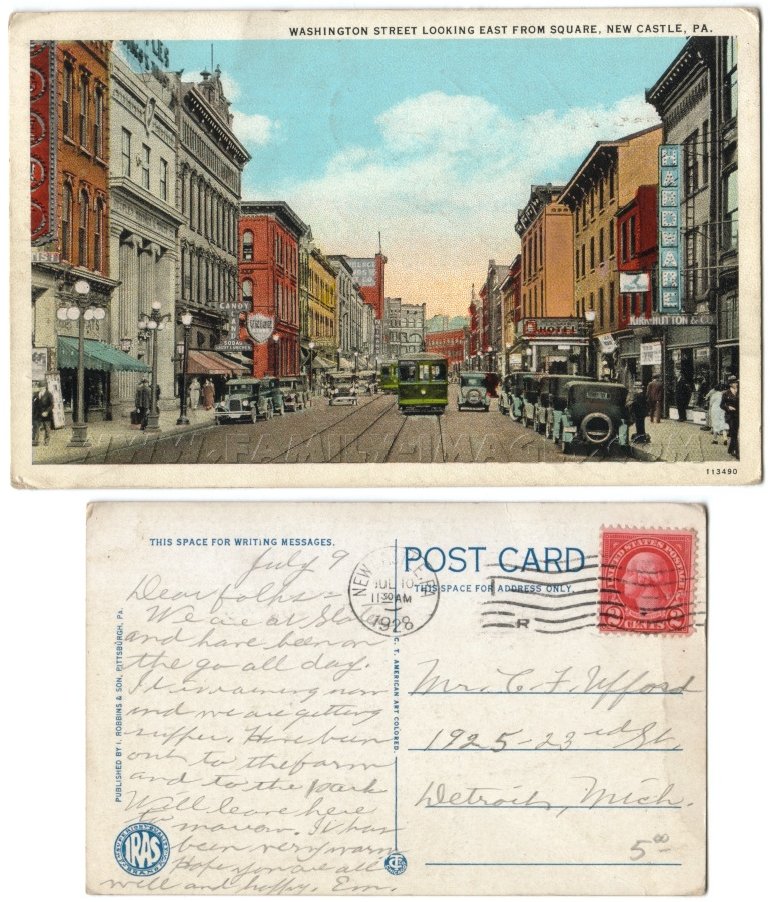 WASHINGTON STREET LOOKING EAST FROM SQUARE, NEW CASTLE, PA.
CANDY
SODAS
HARDWARE
HOTEL
KIRK HUTTON & CO
WWW.FAMILY-IMAGES.COM
113490
THIS SPACE FOR WRITING MESSAGES.
POST CARD
THIS SPACE FOR ADDRESS ONLY
NEW CASTLE, PA
JUL 10
11 30 AM
1928
UNITED STATES POSTAGE
2 CENTS 2
July 9
Dear folks =
We are at
and have been on
the go all day.
It is raining now
and we are getting
supper. Have been
out to the farm
and to the park
Will leave here
Tomorrow. It has
been very warm
Hope you are all
well and happy. Em.
Mr. C. F. Ufford
1925-23rd St.
Detroit, Mich.
5.00
PUBLISHED BY I. ROBBINS & SON, PITTSBURGH, PA.
C. T. AMERICAN ART COLORED.
IRAS